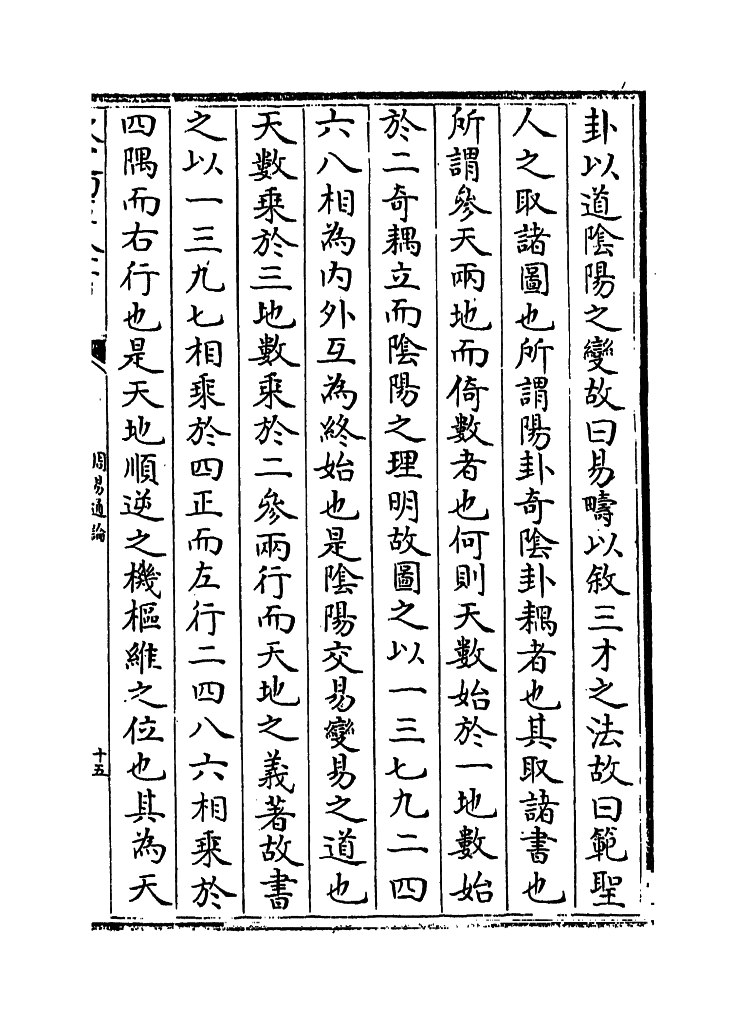 卦以道陰陽之變故曰易疇以敘三才之法故曰範聖
人之取諸圖也所謂陽卦奇陰卦耦者也其取諸書也
所謂參天兩地而倚數者也何則天數始於一地數始
於二奇耦立而陰陽之理明故圖之以一三七九二四
六八相為内外互為終始也是陰陽交易變易之道也
天數乘於三地數乘於二參兩行而天地之義著故書
之以一三九七相乘於四正而左行二四八六相乘於
四隅而右行也是天地順逆之機樞維之位也其為天
周易通論
十五